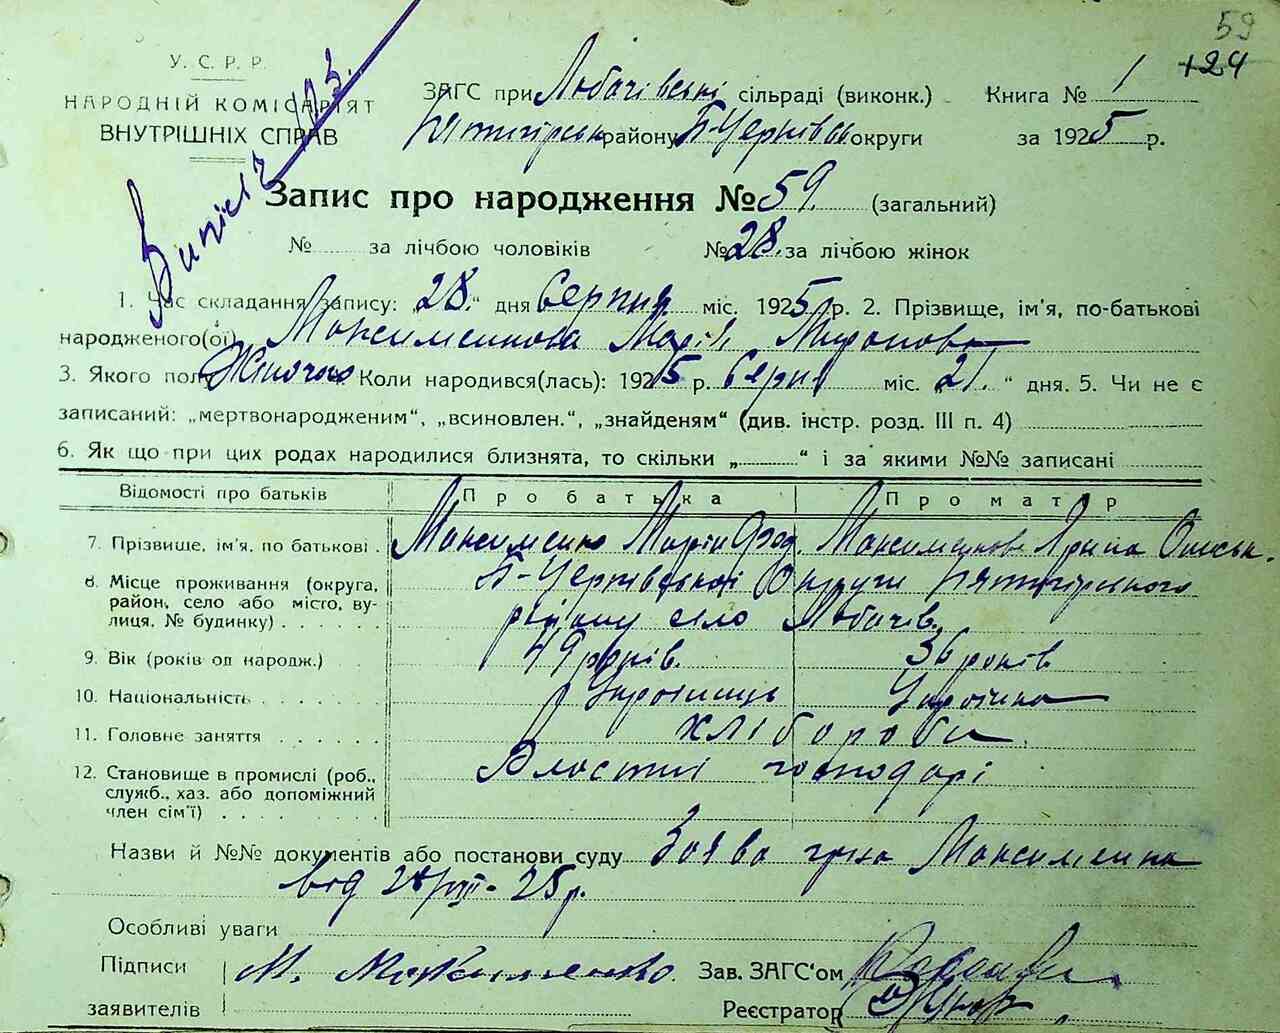 59
+24
У. С. Р. Р.
НАРОДНІЙ КОМІСАРІЯТ
ВНУТРІШНІХ СПРАВ
ЗАГС при Любачівські сільраді (виконк.) Книга № 1
району Б-Церківсь округи за 1925 р.
Запис про народження № 59. (загальний)
№ за лічбою чоловіків № 28. за лічбою жінок
1. Час складання запису: „28.“ дня Серпня міс. 1925 р. 2. Прізвище, ім'я, по-батькові
народженого(ої) Максименкова Марія Миронова
3. Якого полу Жіночого Коли народився(лась): 1925 р. Серпн міс. „21.“ дня. 5. Чи не є
записаний: „мертвонародженим“, „всиновлен.“, „знайденям“ (див. інстр. розд. III п. 4)
6. Як що при цих родах народилися близнята, то скільки „ “ і за якими №№ записані
Відомості про батьків Про батька Про матір
7. Прізвише, ім'я, по батькові. Максименко Максименкова
8. Місце проживання (округа, Б-Церківської Округи Пятигірського
район, село або місто, ву- району село Любачів.
лиця, № будинку)
9. Вік (років од народж.) 49 років. 36 років
10. Національність Українець Українка
11. Головне заняття хлібороби
12. Становище в промислі (роб., Власні господарі
служб., хаз. або допоміжний
член сім'ї)
Назви й №№ документів або постанови суду Заява гр-на Максименка
від 28/VIII-25 р.
Особливі уваги
Підписи М. Максименко Зав. ЗАГС'ом
заявителів Реєстратор